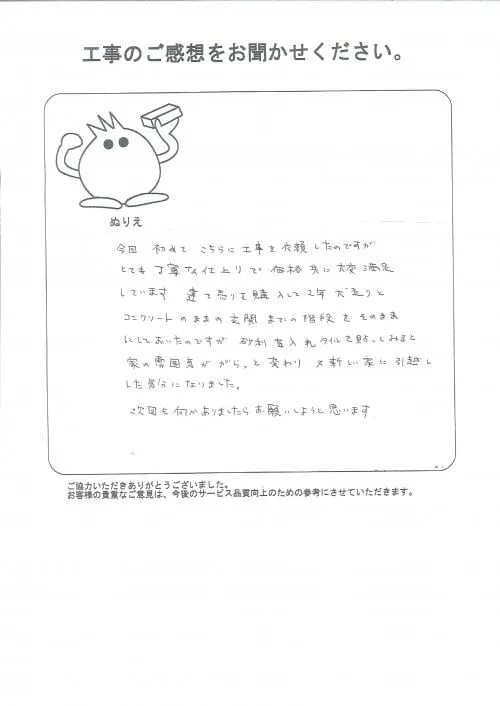 工事のご感想をお聞かせください。
ぬりえ
今回 初めて こちらに工事を依頼したのですが
とても丁寧な仕上りで 価格共に大変満足
しています。建て売りを購入して2年 犬走りと
コンクリートのままの玄関までの階段をそのまま
にしておいたのですが 砂利を入れタイルを貼ってみると
家の雰囲気ががらっと変わり 又新しい家に引越し
した気分になりました。
次回も何かありましたらお願いしようと思います
ご協力いただきありがとうございました。
お客様の貴重なご意見は、今後のサービス品質向上のための参考にさせていただきます。